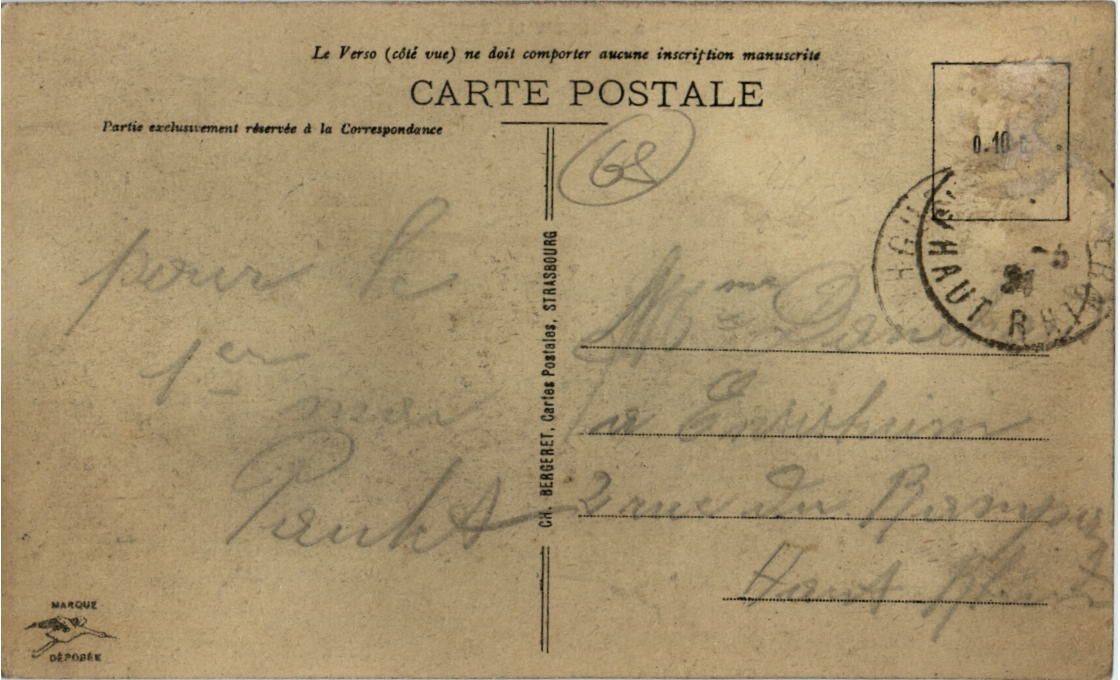 Le Verso (côté vue) ne doit comporter aucune inscription manuscrite
CARTE POSTALE
Partie exclusivement réservée à la Correspondance
68
0.10
HAUT RHIN
pour le
1er
mai
CH. BERGERET, Cartes Postales, STRASBOURG
Mme
a Ensisheim
2 rue du
Haut Rhin
MARQUE
DÉPOSÉE